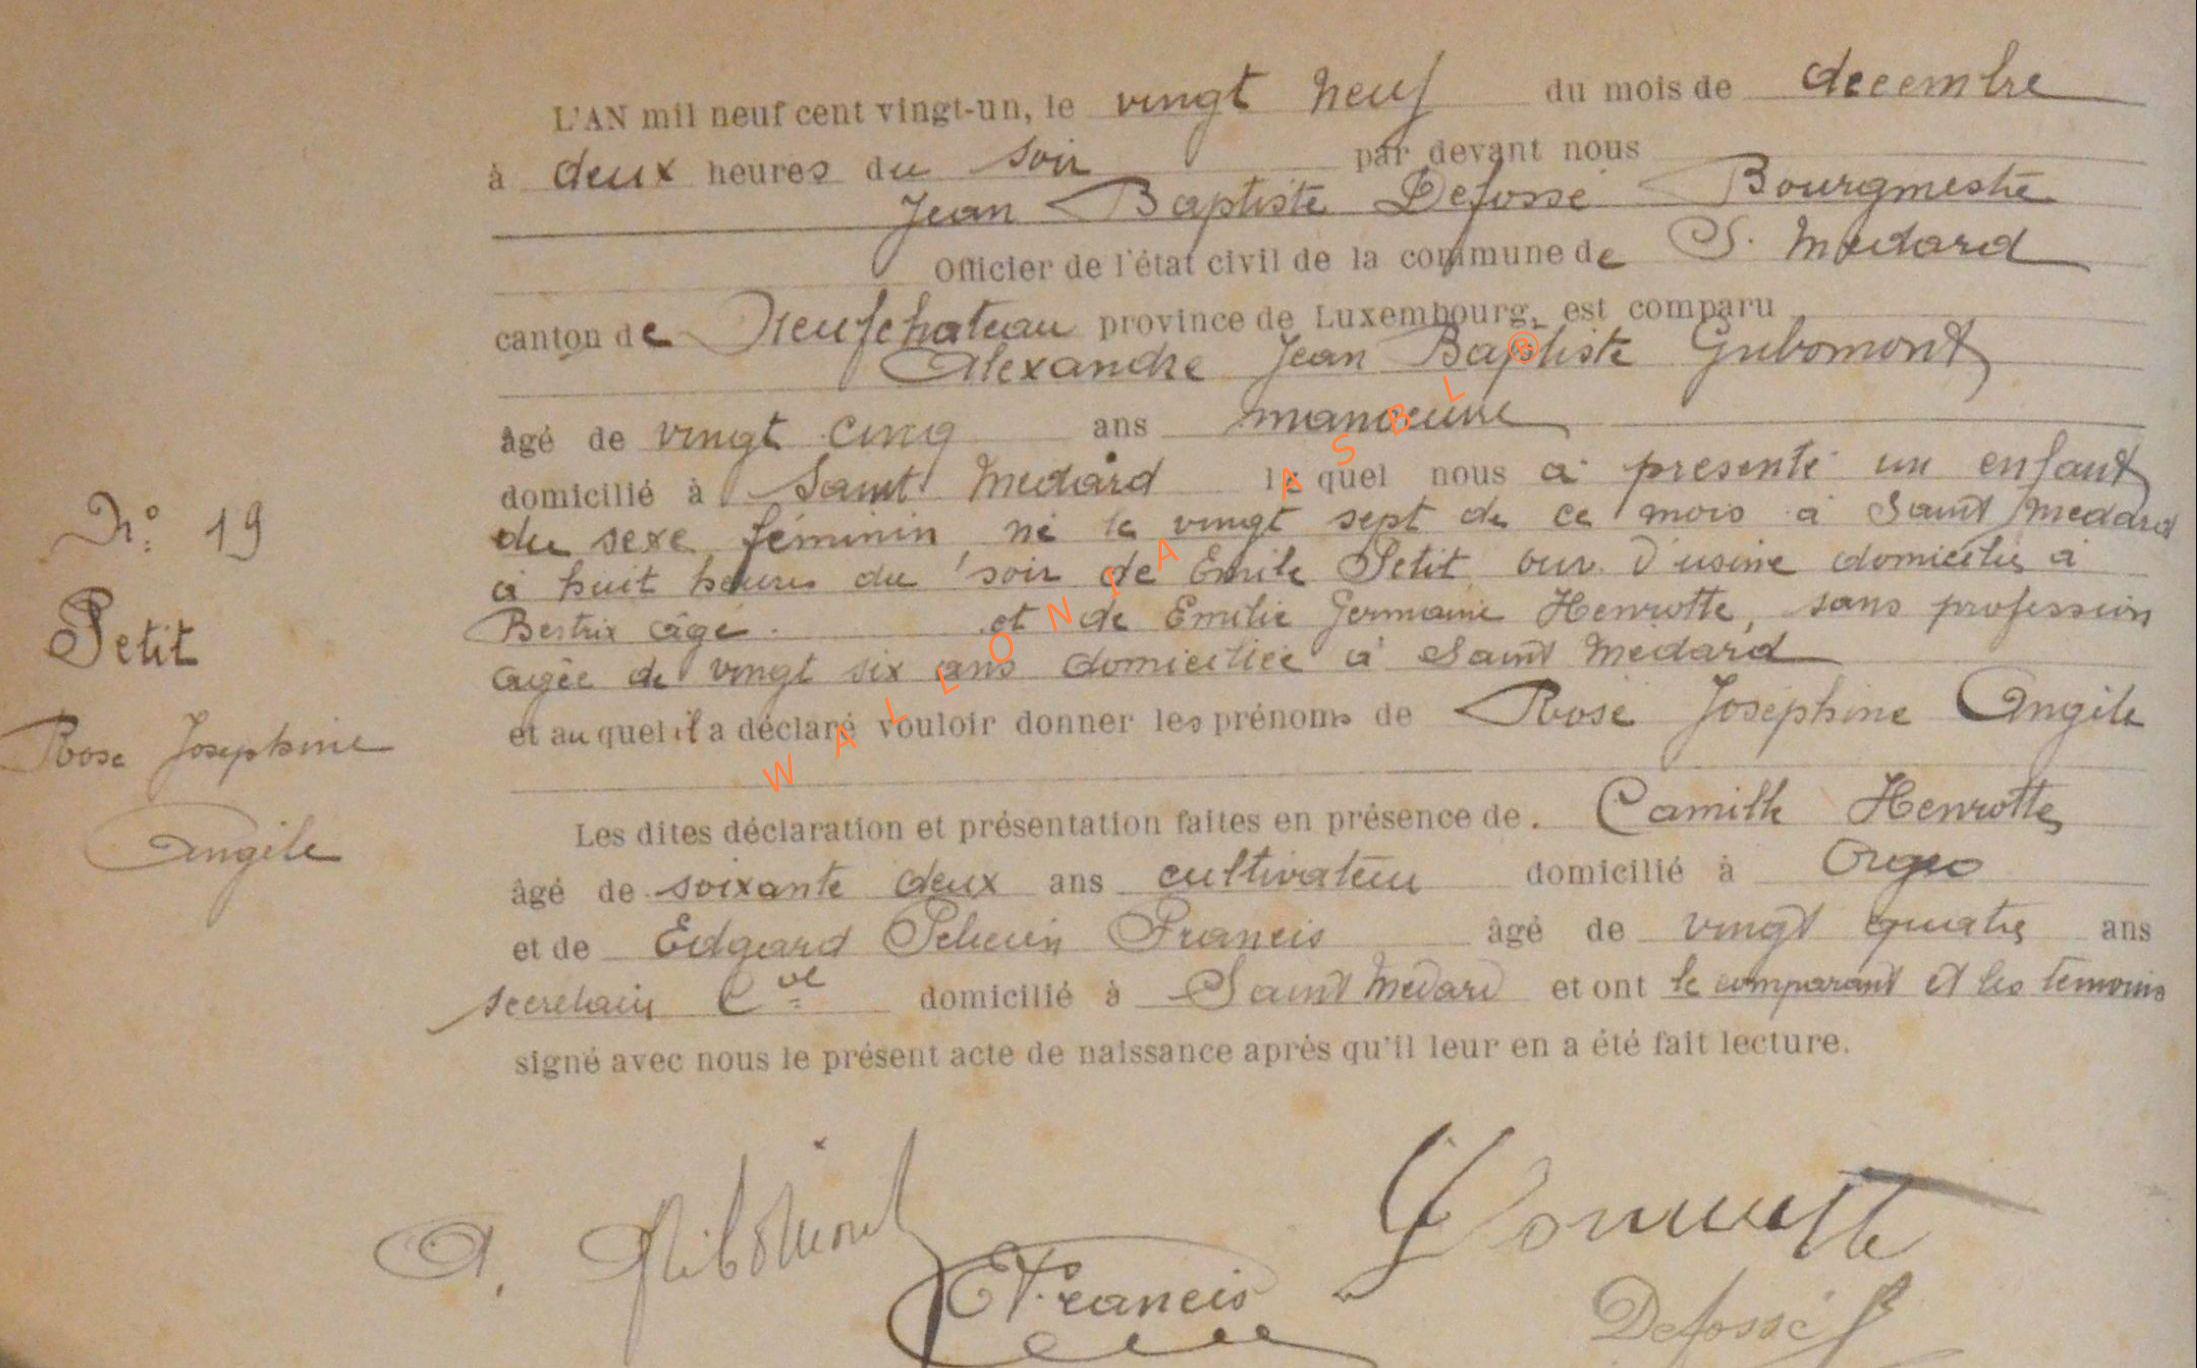 L'AN mil neuf cent vingt-un, le vingt neuf du mois de decembre
à deux heures du soir par devant nous
Jean Baptiste Defossé Bourgmestre
Officier de l'état civil de la commune de S. Medard
canton de Neufchateau province de Luxembourg, est comparu
Alexandre Jean Baptiste Gribomont
âgé de vingt cinq ans manoeuvre
domicilié à Saint Medard lequel nous a presenté un enfant
du sexe féminin né le vingt sept de ce mois à Saint Medard
à huit heures du soir de Emile Petit ouv. d'usine domicilié à
Bertrix âgé et de Emilie Germaine Henrotte, sans profession
agée de vingt six ans domiciliée à Saint Medard
et auquel il a déclaré vouloir donner les prénoms de Rose Josephine Angèle
Les dites déclaration et présentation faites en présence de. Camille Henrotte
âgé de soixante deux ans cultivateur domicilié à Orgeo
et de Edgard Francis âgé de vingt quatre ans
secretaire Cal domicilié à Saint Medard et ont le comparant et les témoins
signé avec nous le présent acte de naissance après qu'il leur en a été fait lecture.
N° 19
Petit
Rose Josephine
Angèle
A. Gribomont
E Francis
Defossé
WALLONIA ASBL ®